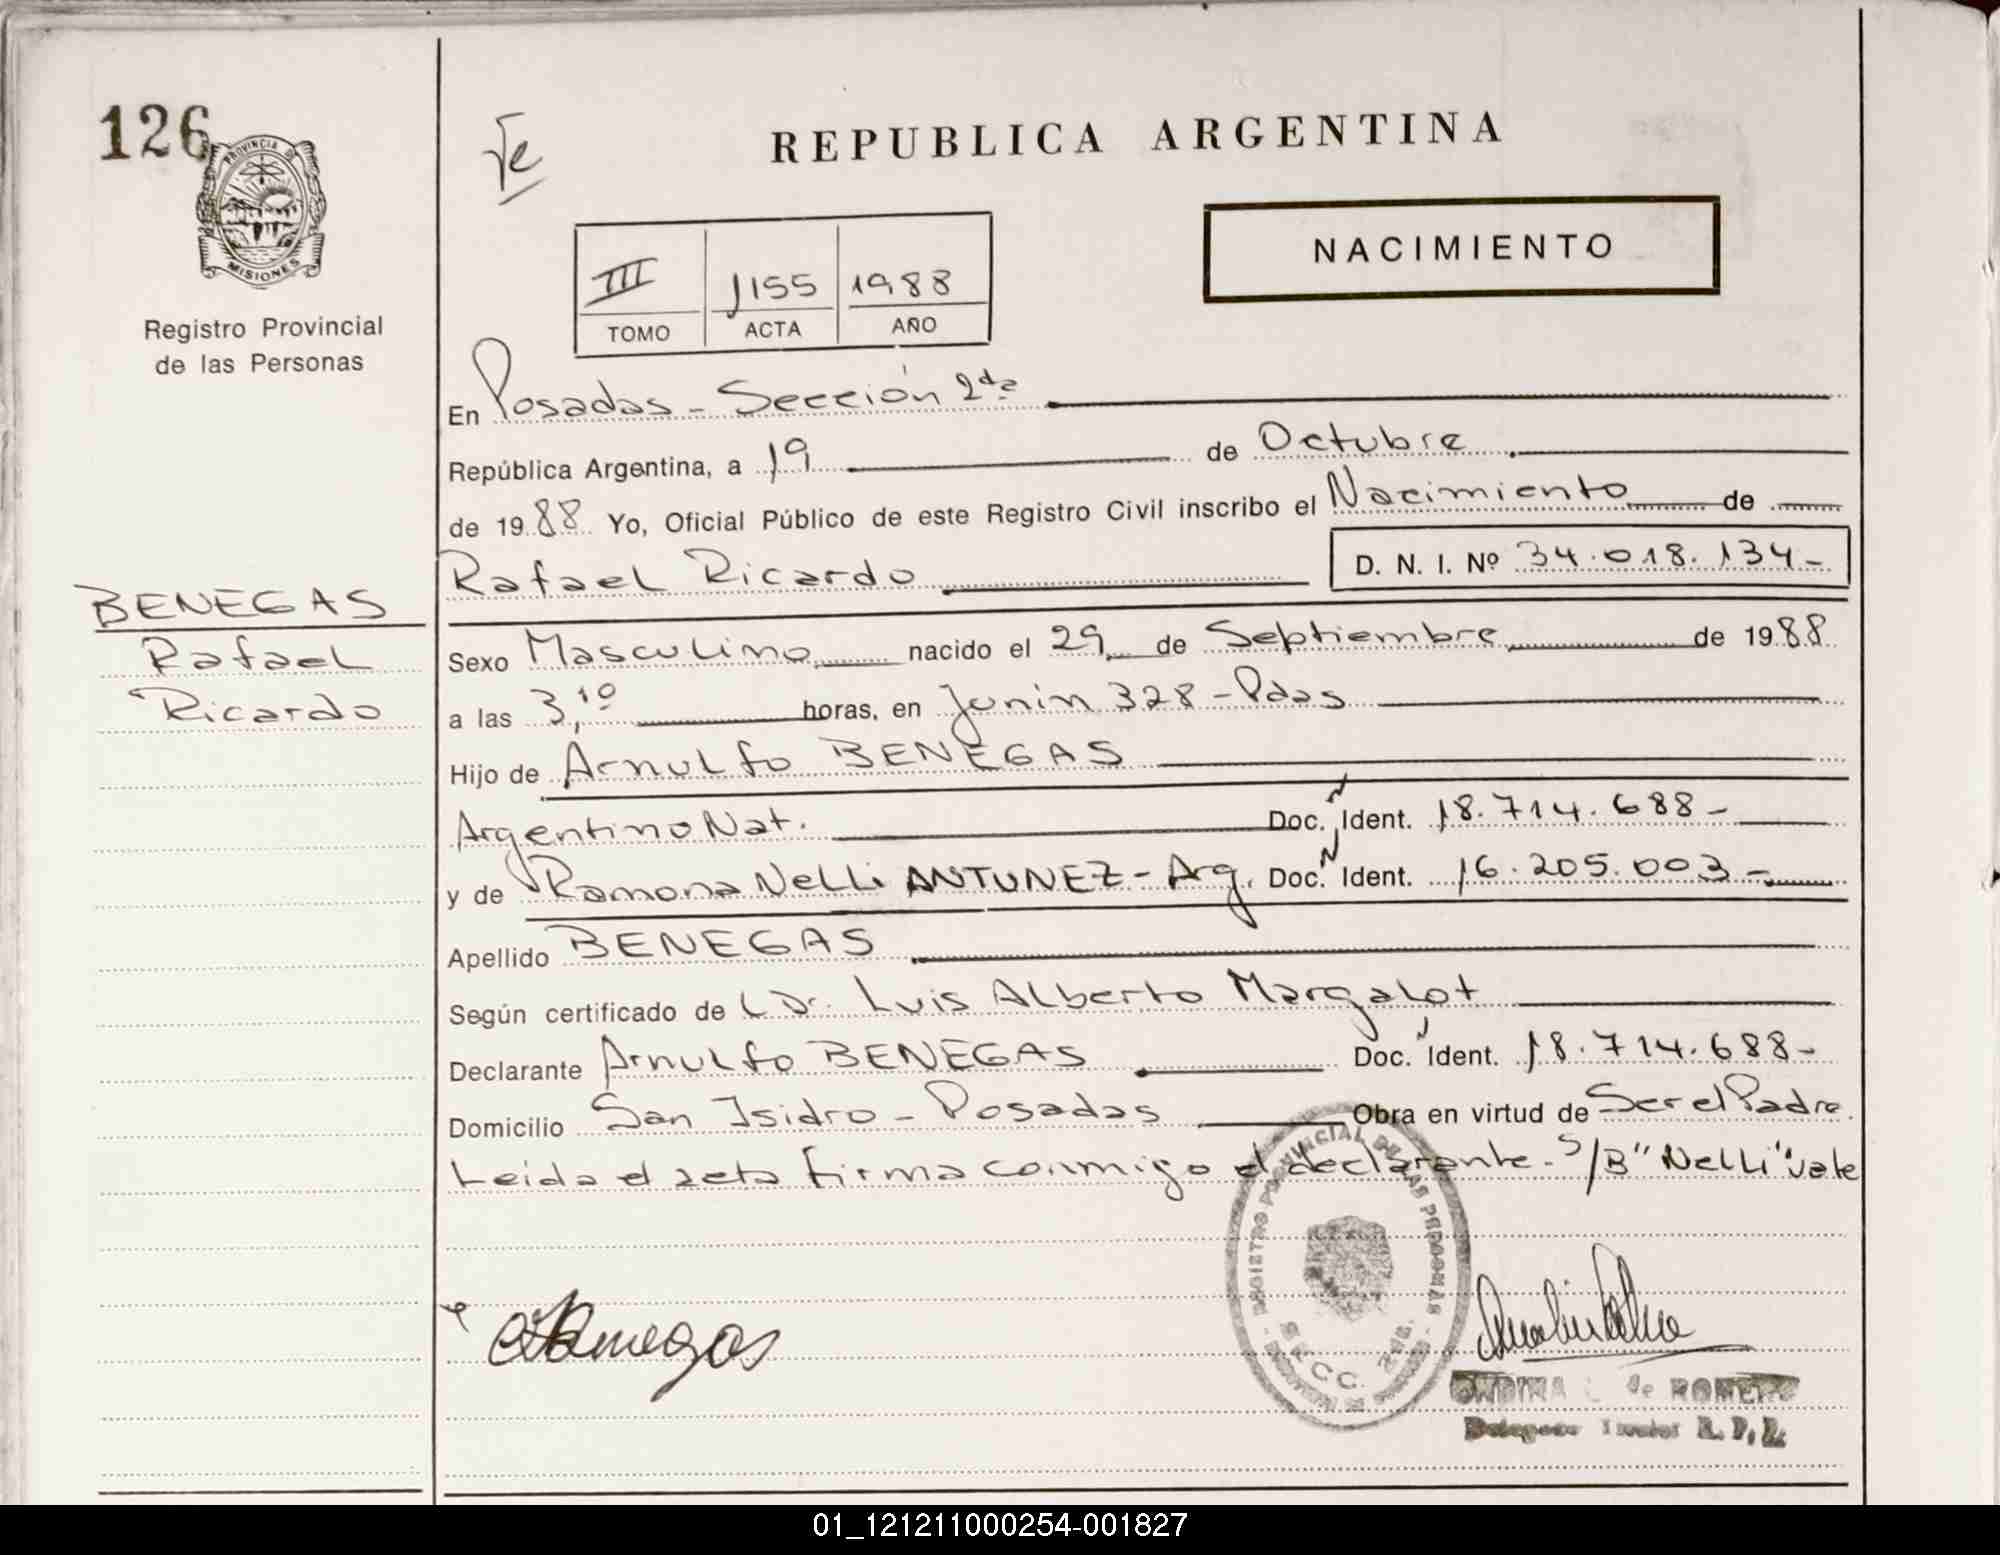 126
PROVINCIA DE
MISIONES
Registro Provincial
de las Personas
BENEGAS
Rafael
Ricardo
REPUBLICA ARGENTINA
NACIMIENTO
III 1155 1988
TOMO ACTA AÑO
En Posadas - Sección 2da
República Argentina, a 19 de Octubre
de 1988 Yo, Oficial Público de este Registro Civil inscribo el Nacimiento de
Rafael Ricardo D. N. I. Nº 34.018.134-
Sexo Masculino nacido el 29 de Septiembre de 1988
a las 3,10 horas, en Junin 328 - Pdas
Hijo de Arnulfo BENEGAS
Argentino Nat. Doc. N Ident. 18.714.688-
y de Ramona Nelli ANTUNEZ - Arg. Doc. N Ident. 16.205.003-
Apellido BENEGAS
Según certificado de Dr. Luis Alberto Margalot
Declarante Arnulfo BENEGAS Doc. Ident. 18.714.688-
Domicilio San Isidro - Posadas Obra en virtud de Ser el Padre.
Leida el acta firma conmigo el declarante. S/B "Nelli" vale
REGISTRO PROVINCIAL DE LAS PERSONAS
SECC. 2da.
Benegas
ONDINA de ROMERO
R. P. P.
01_121211000254-001827